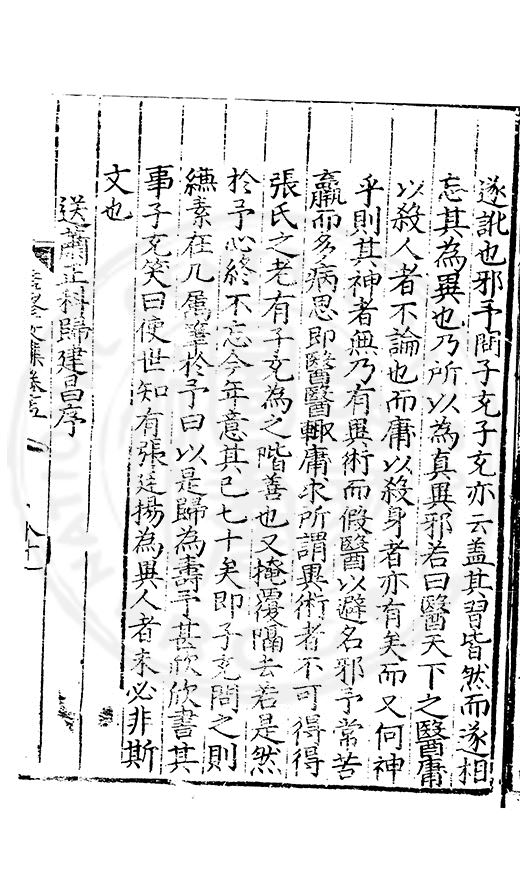 遂訛也邪予問子充子充亦云盖其習皆然而遂相
忘其為異也乃所以為真異邪若曰醫天下之醫庸
以殺人者不論也而庸以殺身者亦有矣而又何神
乎則其神者無乃有異術而假醫以避名邪予常苦
羸而多病思即醫醫輙庸求所謂異術者不可得得
張氏之老有子充為之階善也又掩覆隔去若是然
於予心終不忘今年意其已七十矣即子充問之則
縑素在几属筆於予曰以是歸為壽予甚欣欣書其
事子充笑曰使世知有張廷揚為異人者未必非斯
文也
送蕭正科歸建昌序
文集卷